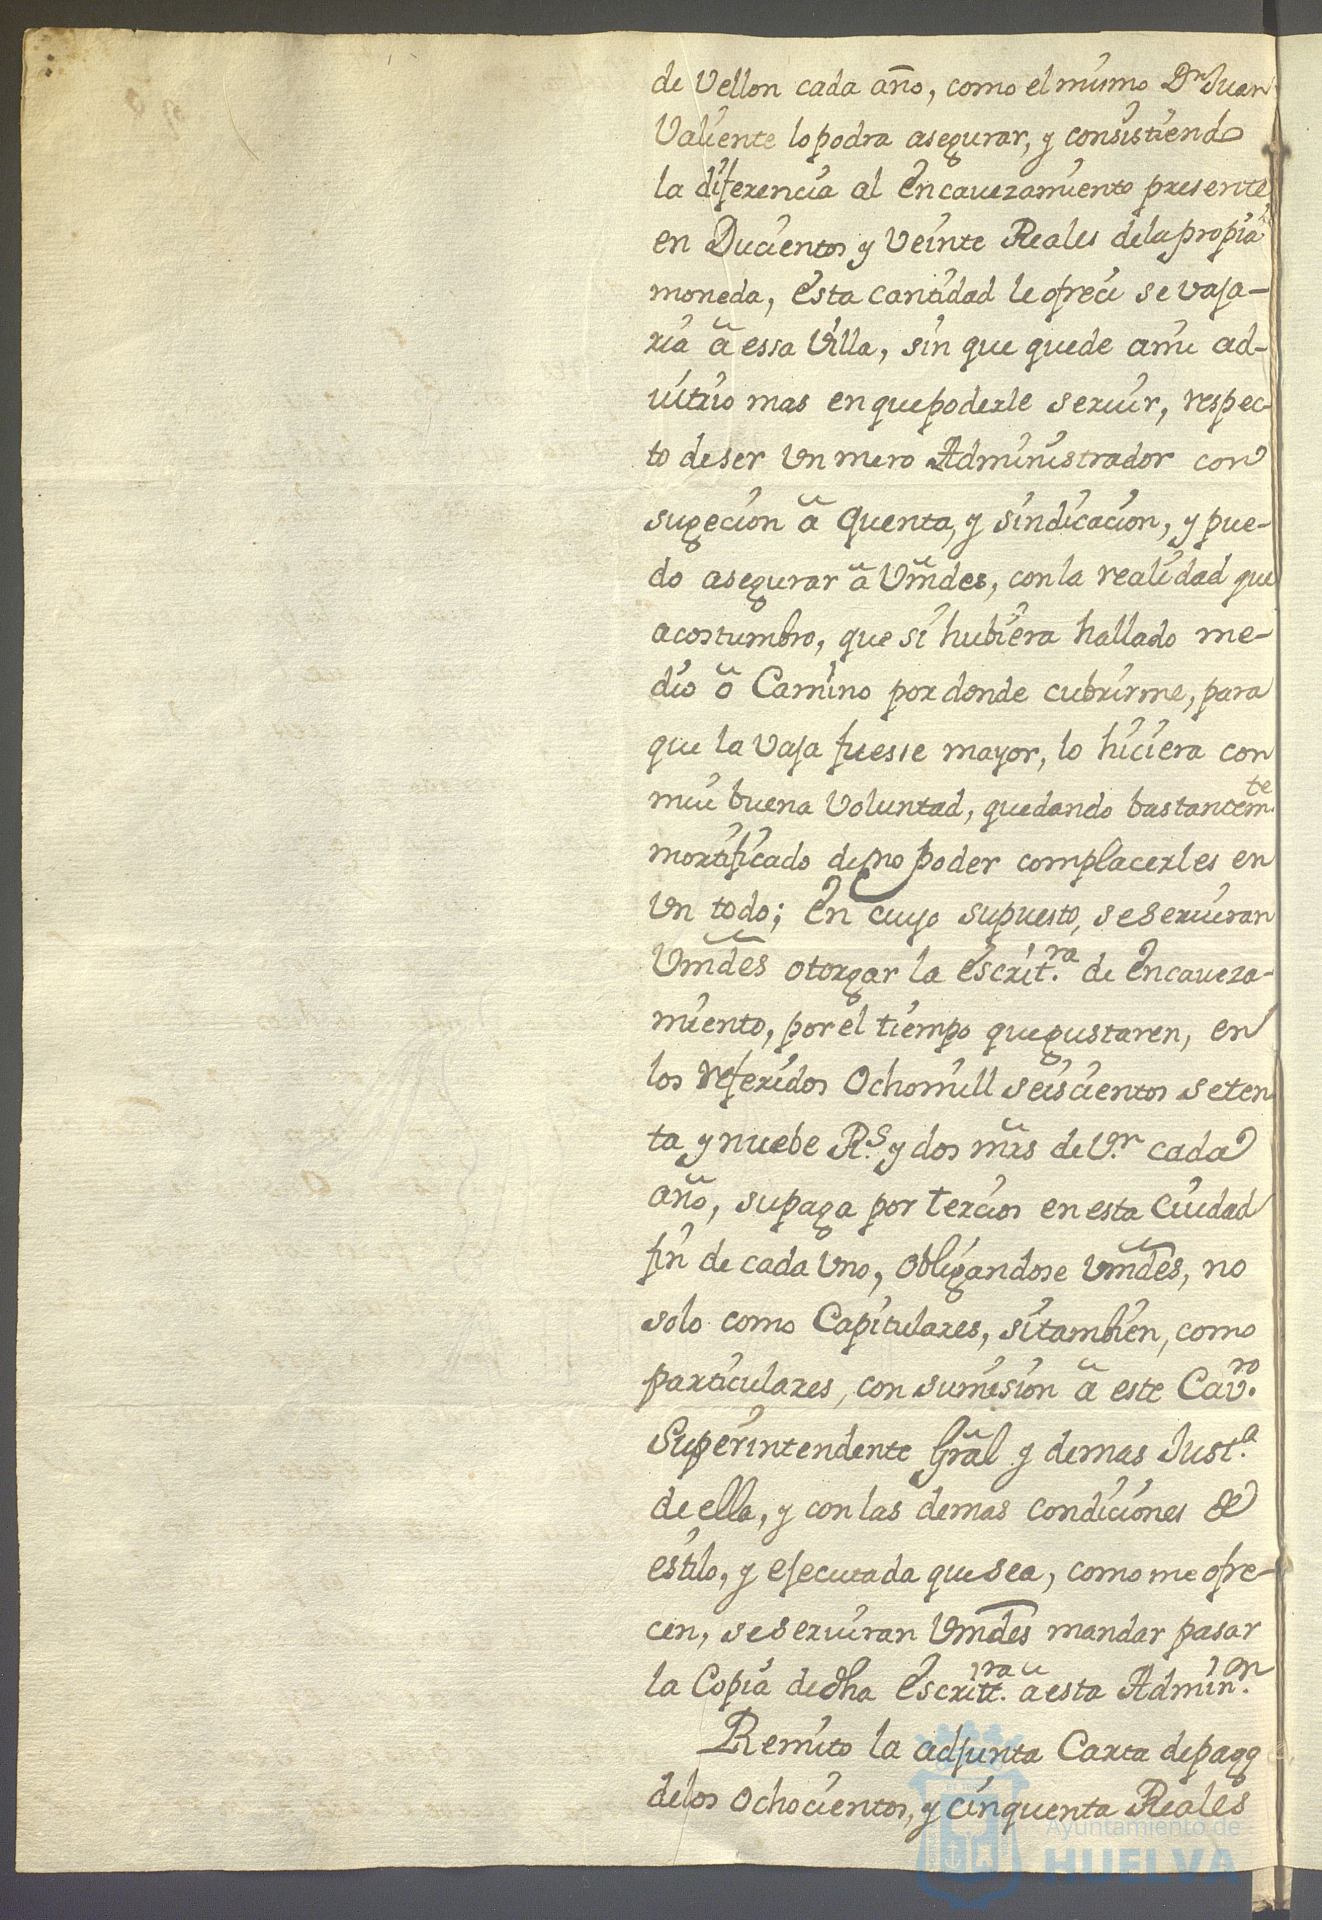 de Vellon cada año, como el mismo Dn Juan
Valiente lo podra asegurar, y consistiendo
la diferencia al encavezamiento presente,
en Ducientos y Veinte Reales de la propia
moneda, esta cantidad le ofreci se vaja-
ria â essa Villa, sin que quede a mi ad-
vitrio mas en que poderle servir, respec-
to de ser Un mero Administrador con
sugecion â quenta, y sindicacion, y pue-
do asegurar â Vmdes, con la realidad que
acostumbro, que si hubiera hallado me-
dio ô Camino por donde cubrirme, para
que la vaja fuesse mayor, lo hiciera con
mui buena Voluntad, quedando bastantemte
mortificado de no poder complacerles en
Un todo; En cuyo supuesto, se serviran
Vmdes otorgar la escrit.ra de Encaveza-
miento, por el tiempo que gustaren, en
los referidos Ochomill seiscientos seten
ta y nuebe R.s y dos mrs de V.n cada
año, su paga por tercios en esta Ciudad
fin de cada Uno, obligandose Vmdes, no
solo como Capitulares, si tambien, como
particulares, con sumision â este Cav.ro
Superintendente Gral y demas Just.a
de ella, y con las demas condiciones de
estilo, y ejecutada que sea, como me ofre-
cen, se serviran Vmdes mandar pasar
la Copia de dha Escritt.ra â esta Admin.on
Remito la adjunta Carta de pago
de los Ochocientos, y cinquenta Reales
Ayuntamiento de
HUELVA